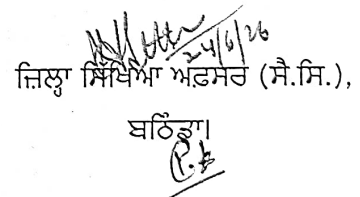 24/6/26
ਜ਼ਿਲ੍ਹਾ ਸਿੱਖਿਆ ਅਫ਼ਸਰ (ਸੈ.ਸਿ.),
ਬਠਿੰਡਾ।